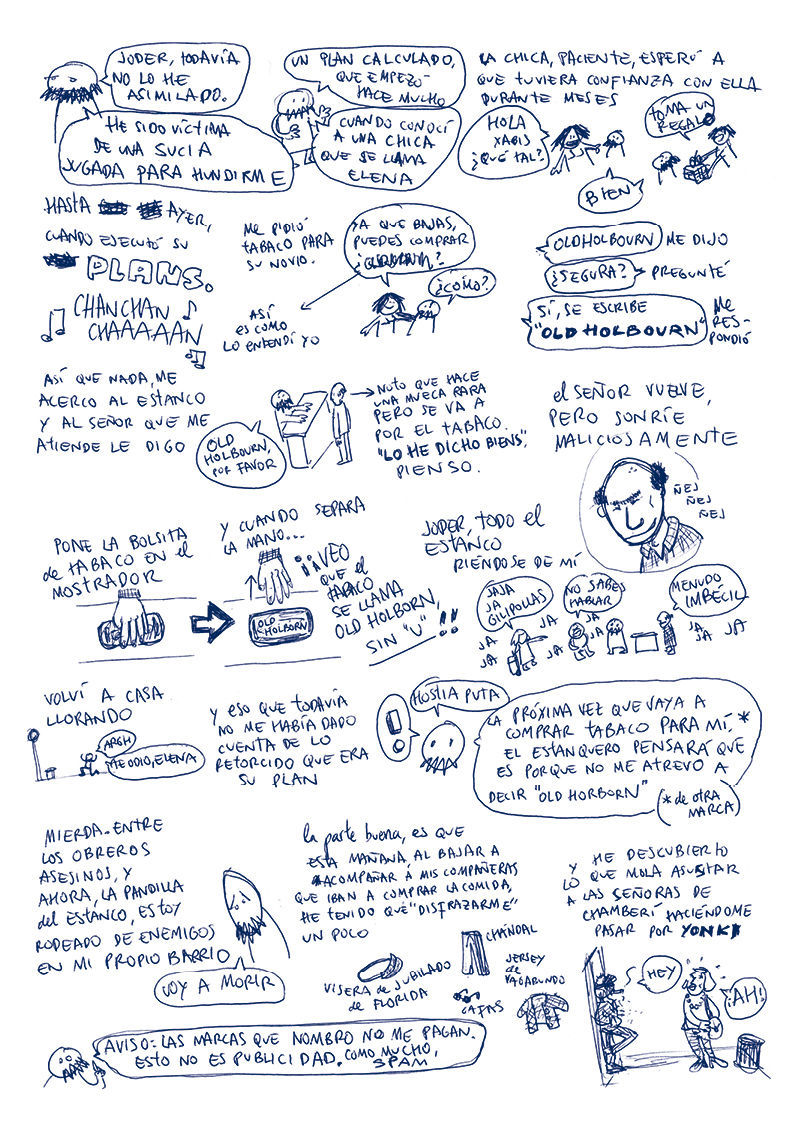 JODER, TODAVÍA
NO LO HE
ASIMILADO.
HE SIDO VÍCTIMA
DE UNA SUCIA
JUGADA PARA HUNDIRME
UN PLAN CALCULADO,
QUE EMPEZÓ
HACE MUCHO
CUANDO CONOCÍ
A UNA CHICA
QUE SE LLAMA
ELENA
LA CHICA, PACIENTE, ESPERÓ A
QUE TUVIERA CONFIANZA CON ELLA
DURANTE MESES
HOLA
XABIS
¿QUÉ TAL?
BIEN
TOMA UN
REGALO
HASTA AYER,
CUANDO EJECUTÓ SU
PLANS.
CHANCHAN
CHAAAAAN
ME PIDIÓ
TABACO PARA
SU NOVIO.
YA QUE BAJAS,
PUEDES COMPRAR
¿CÓMO?
ASÍ
ES COMO
LO ENTENDÍ YO
OLDHOLBOURN ME DIJO
¿SEGURA? PREGUNTÉ
SÍ, SE ESCRIBE
"OLD HOLBOURN"
ME
RES-
PONDIÓ
ASÍ QUE NADA, ME
ACERCO AL ESTANCO
Y AL SEÑOR QUE ME
ATIENDE LE DIGO
OLD
HOLBOURN,
POR FAVOR
NOTO QUE HACE
UNA MUECA RARA
PERO SE VA A
POR EL TABACO.
"LO HE DICHO BIENS",
PIENSO.
el SEÑOR VUELVE,
PERO SONRÍE
MALICIOSAMENTE
ÑEJ
ÑEJ
ÑEJ
PONE LA BOLSITA
de TABACO EN el
MOSTRADOR
Y CUANDO SEPARA
LA MANO...
OLD
HOLBORN
¡¡VEO
QUE el
TABACO
SE LLAMA
OLD HOLBORN,
SIN "U"!!
JODER, TODO el
ESTANCO
RIÉNDOSE DE MÍ
JAJA
JA
GILIPOLLAS
NO SABES
HABLAR
MENUDO
IMBÉCIL
JA
JA
JA
JA
JA
JA
JA
JA
VOLVÍ A CASA
LLORANDO
ARGH
TE ODIO, ELENA
Y ESO QUE TODAVÍA
NO ME HABÍA DADO
CUENTA DE LO
RETORCIDO QUE ERA
SU PLAN
!
HOSTIA PUTA
LA PRÓXIMA VEZ QUE VAYA A
COMPRAR TABACO PARA MÍ,*
EL ESTANQUERO PENSARÁ QUE
ES PORQUE NO ME ATREVO A
DECIR "OLD HORBORN"
(* de OTRA
MARCA)
MIERDA. ENTRE
LOS OBREROS
ASESINOS, Y
AHORA, LA PANDILLA
del ESTANCO, ESTOY
RODEADO DE ENEMIGOS
EN MI PROPIO BARRIO
VOY A MORIR
la parte buena, es que
ESTA MAÑANA, AL BAJAR A
ACOMPAÑAR A MIS COMPAÑERAS
QUE IBAN A COMPRAR LA COMIDA,
HE TENIDO QUE "DISFRAZARME"
UN POCO
VISERA de JUBILADO
de FLORIDA
CHÁNDAL
GAFAS
JERSEY
de
VAGABUNDO
Y HE DESCUBIERTO
LO QUE MOLA ASUSTAR
A LAS SEÑORAS DE
CHAMBERÍ HACIÉNDOME
PASAR POR YONKI
HEY
¡AH!
AVISO: LAS MARCAS QUE NOMBRO NO ME PAGAN.
ESTO NO ES PUBLICIDAD. COMO MUCHO,
SPAM